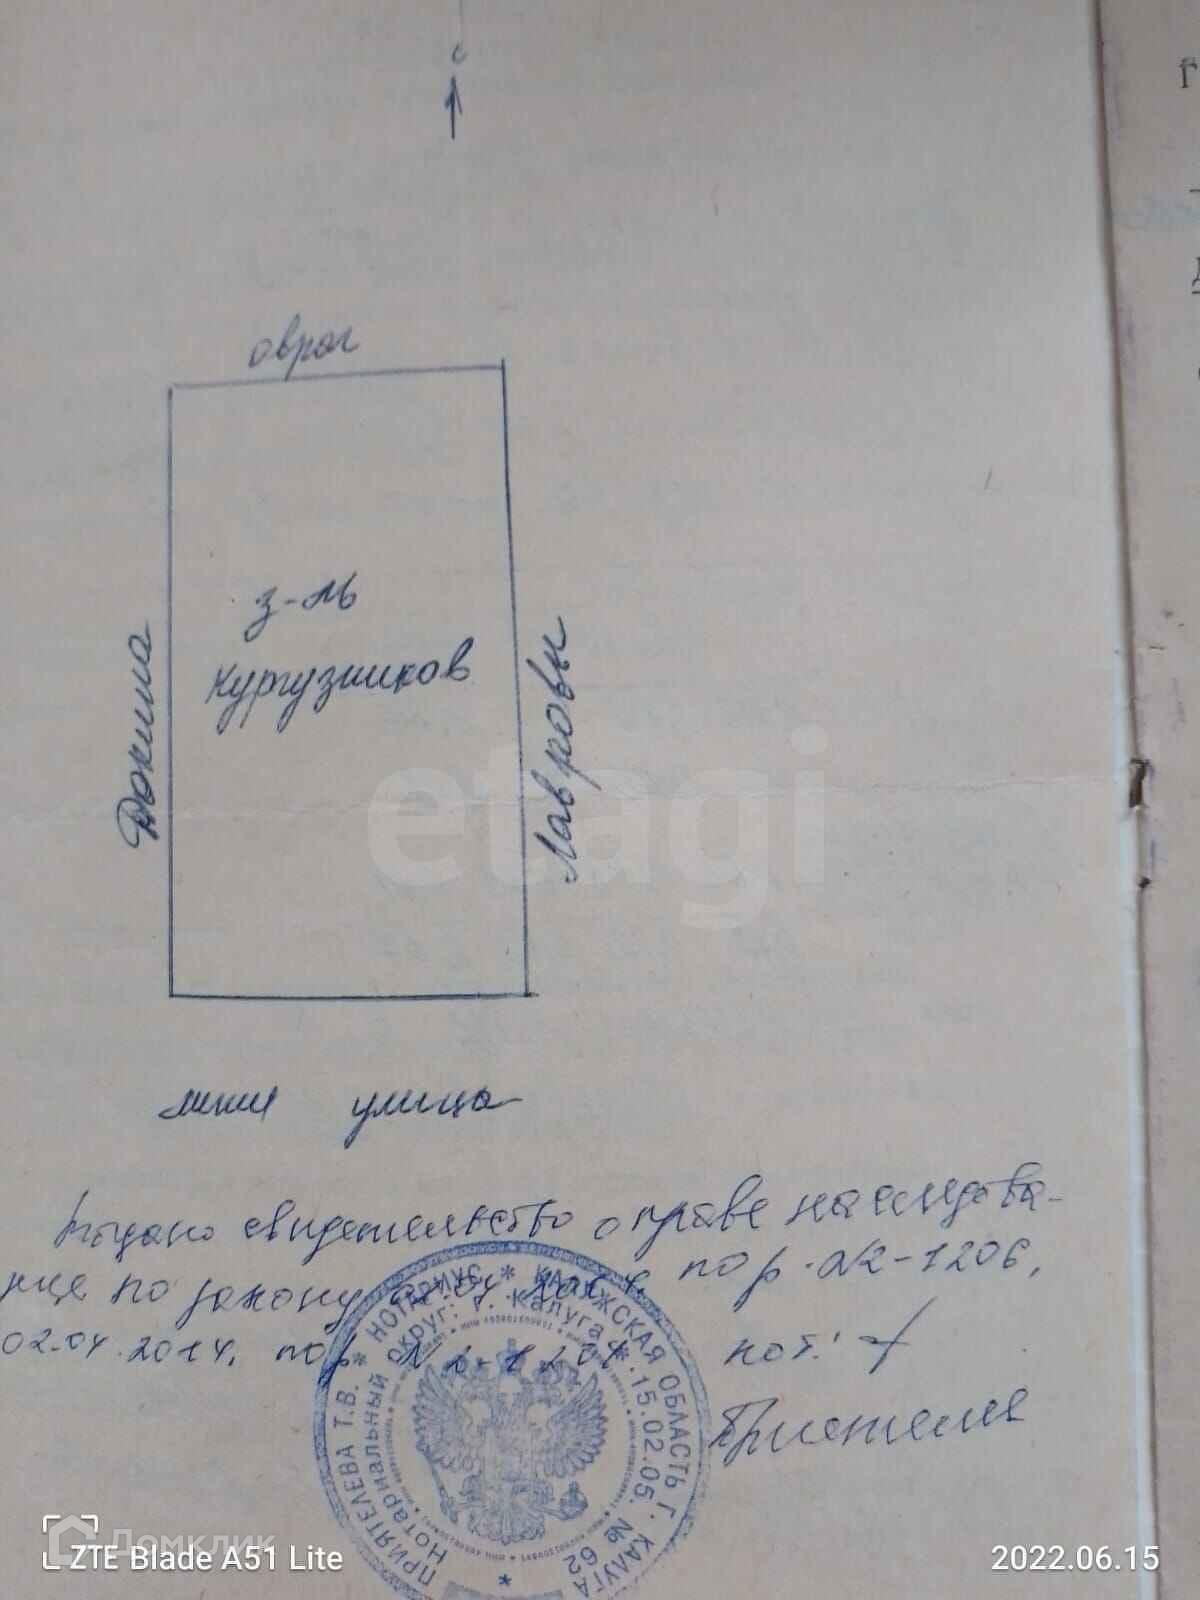 с
овраг
з-ль
Кургузников
Докина
Лавровы
линия улица
Выдано свидетельство о праве наследова-
ние по закону 02.04.2014 по р. №2-1206,
02.04.2014. по р. №2-1207 нот.
Приятелева
ПРИЯТЕЛЕВА Т.В. * НОТАРИУС * КАЛУЖСКАЯ ОБЛАСТЬ Г. КАЛУГА *
Нотариальный округ: г. Калуга *.15.02.05. № 62
etagi
Домклик
ZTE Blade A51 Lite
2022.06.15